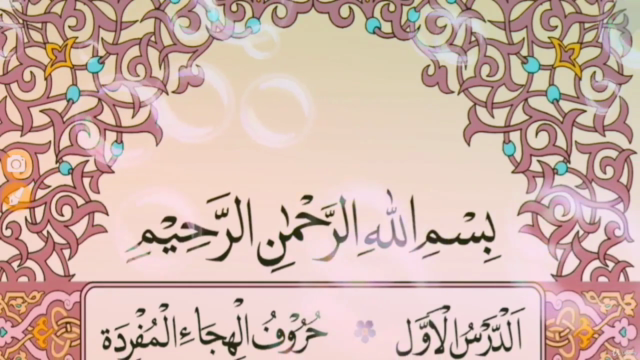 بِسْمِ اللهِ الرَّحْمٰنِ الرَّحِيْمِ
اَلدَّرْسُ الْاَوَّل حُرُوْفُ الْهِجَاءِ الْمُفْرَدَة